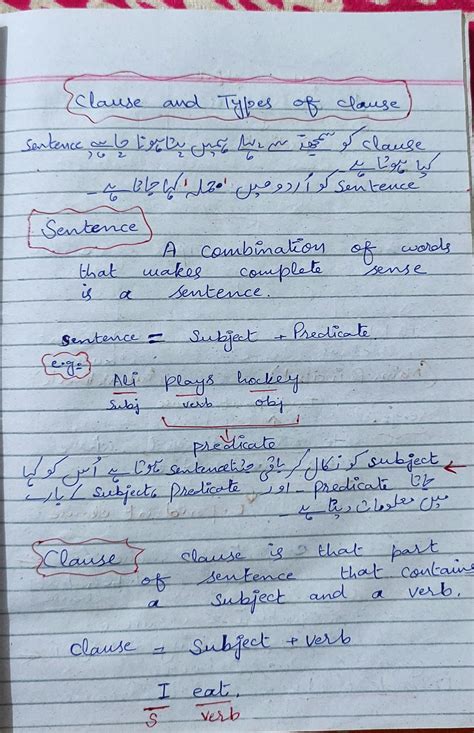 Clause and Types of clause
Clause کو سمجھنے سے پہلے ہمیں پتا ہونا چاہیے Sentence
کیا ہوتا ہے۔
Sentence کو اُردو میں "جملہ" کہا جاتا ہے۔
Sentence
A combination of words
that makes complete sense
is a sentence.
sentence = Subject + Predicate.
e.g:-
Ali plays hockey
Subj verb obj
predicate
subject کو نکال کر باقی جتنا sentence ہوتا ہے اُس کو کہا
جاتا Predicate - اور Predicate, Subject کے بارے
میں معلومات دیتا ہے۔
Clause clause is that part
of sentence that contains
a subject and a verb.
clause = Subject + verb
I eat.
S verb